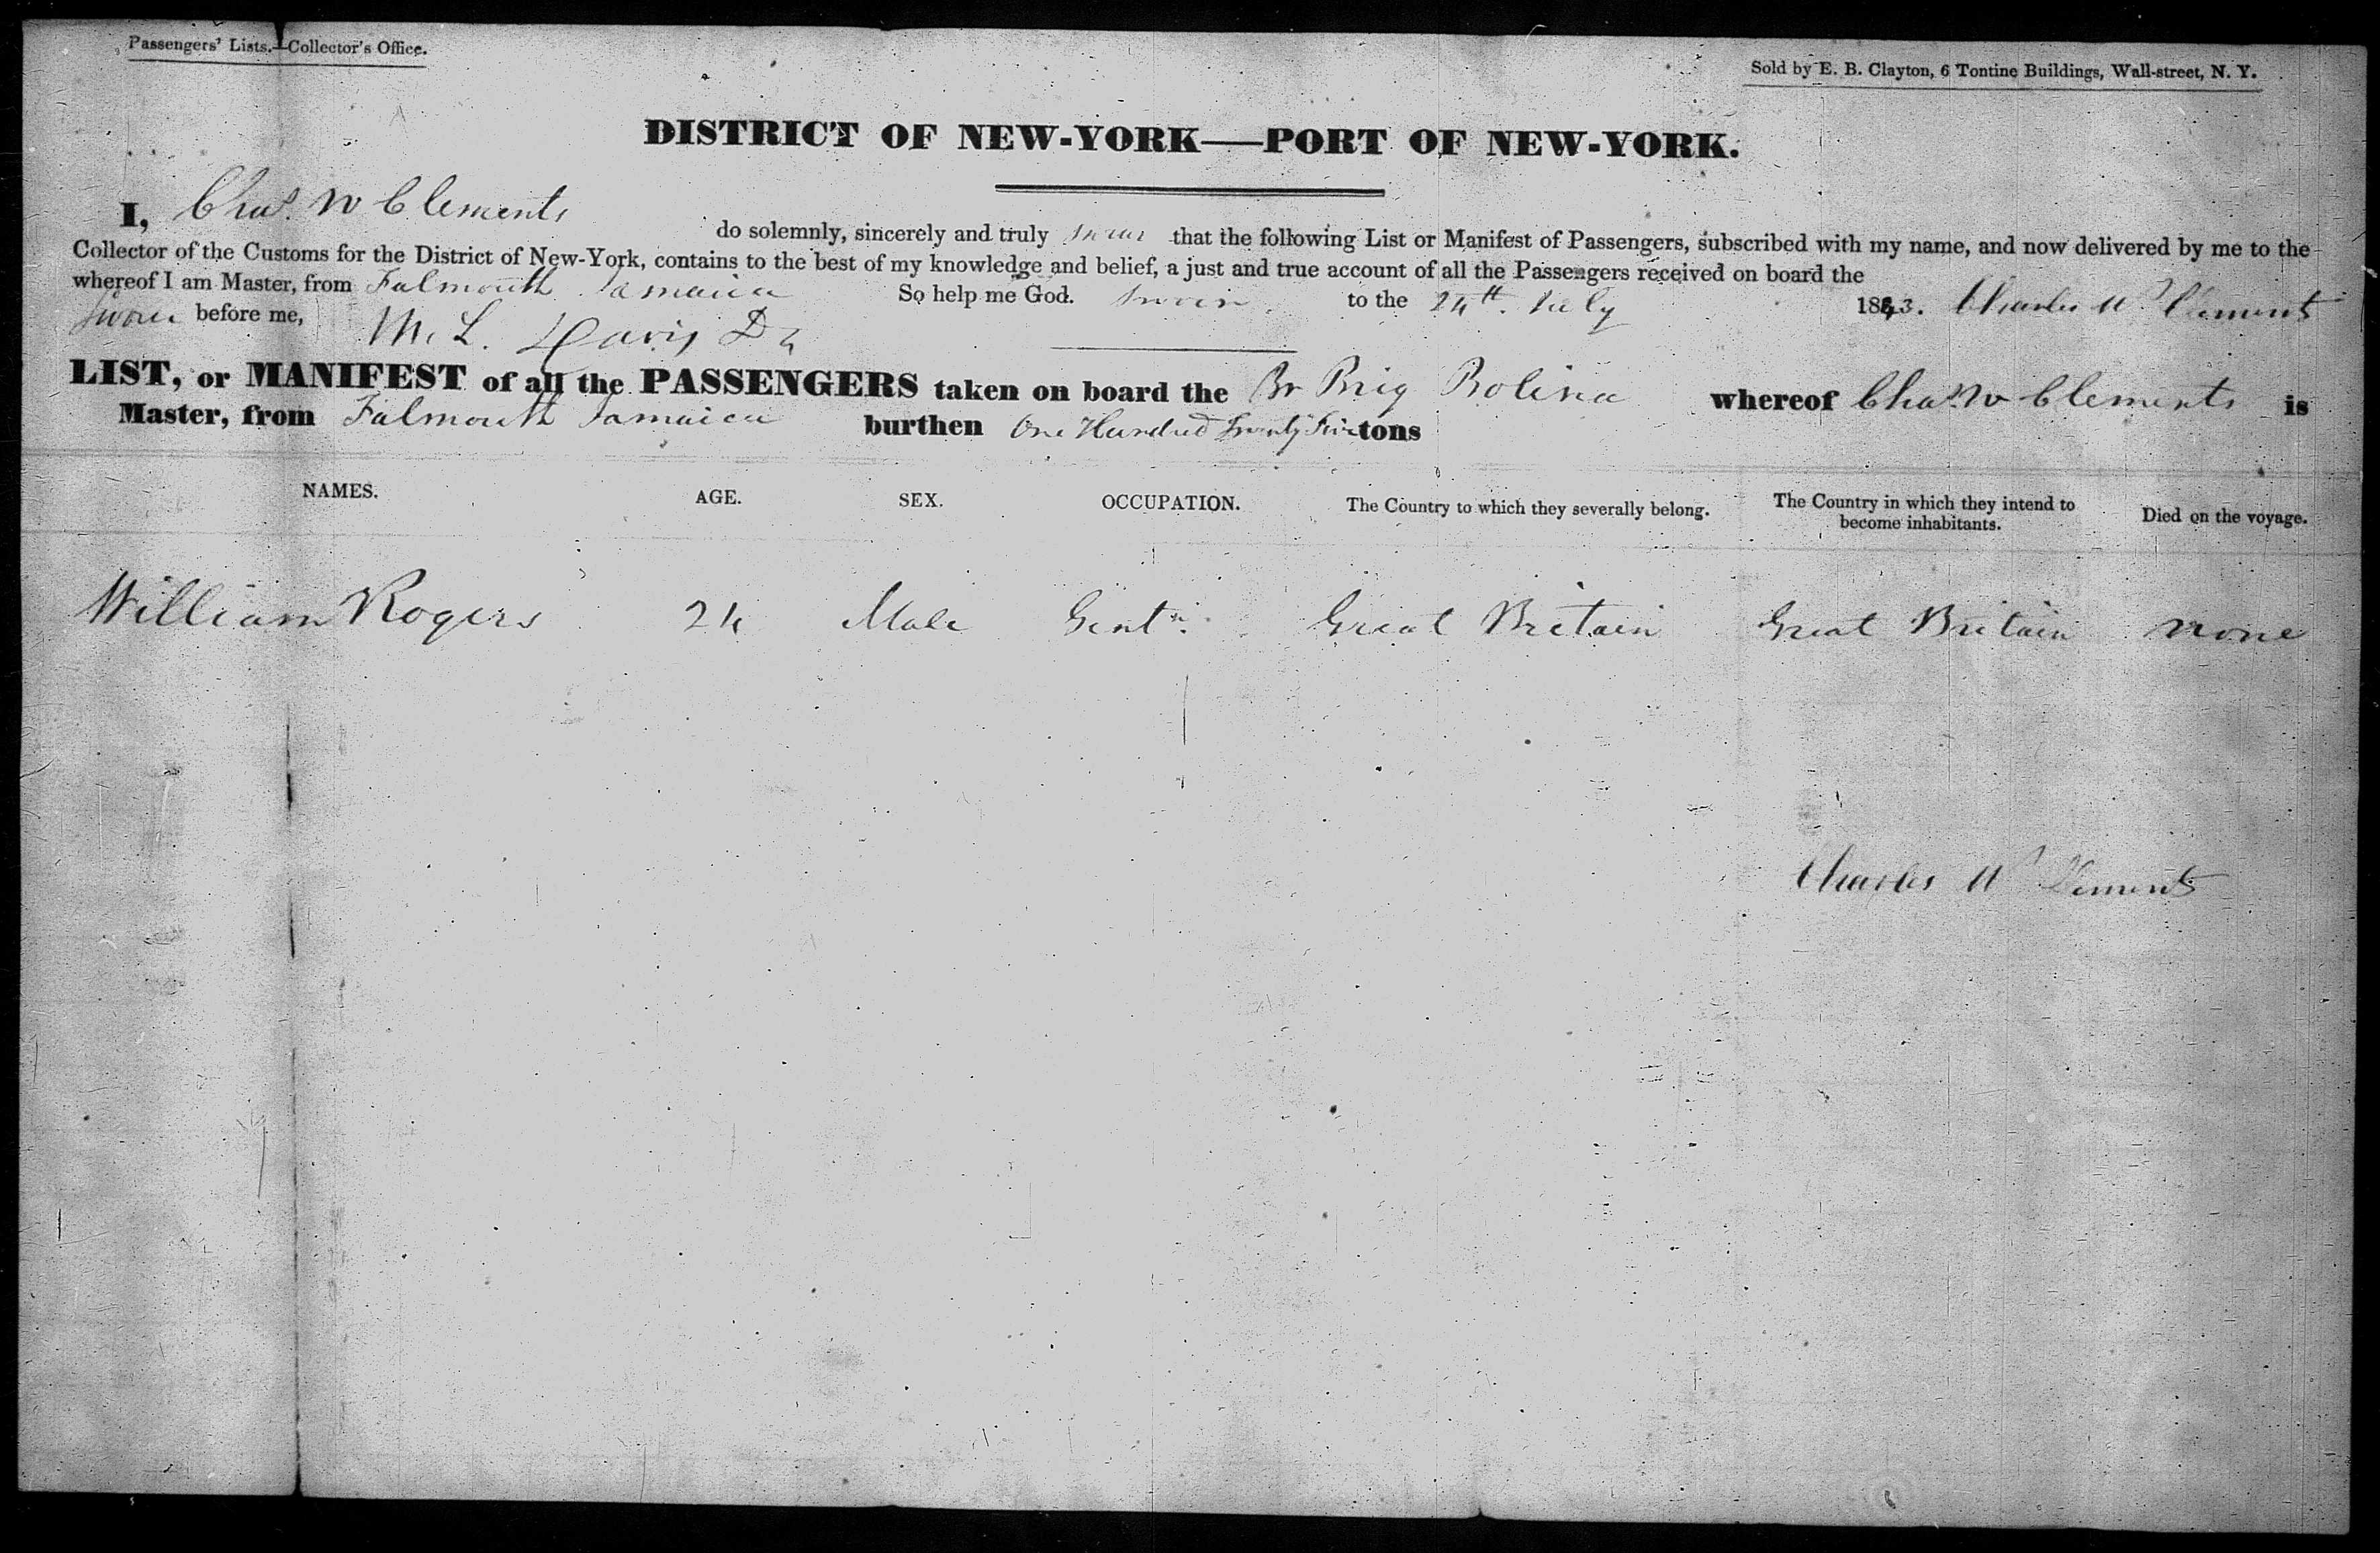 Passengers' Lists.—Collector's Office.
Sold by E. B. Clayton, 6 Tontine Buildings, Wall-street, N. Y.
DISTRICT OF NEW-YORK—PORT OF NEW-YORK.
I, Chas. W Clements do solemnly, sincerely and truly swear that the following List or Manifest of Passengers, subscribed with my name, and now delivered by me to the
Collector of the Customs for the District of New-York, contains to the best of my knowledge and belief, a just and true account of all the Passengers received on board the
whereof I am Master, from Falmouth Jamaica So help me God. Sworn to the 24th July 1843. Charles W Clements
Sworn before me, M. L. Davis
LIST, or MANIFEST of all the PASSENGERS taken on board the Br Brig Bolina whereof Chas. W Clements is
Master, from Falmouth Jamaica burthen One Hundred Twenty tons
NAMES. AGE. SEX. OCCUPATION. The Country to which they severally belong. The Country in which they intend to become inhabitants. Died on the voyage.
William Rogers 24 Male Gentn. Great Britain Great Britain none
Charles W Clements